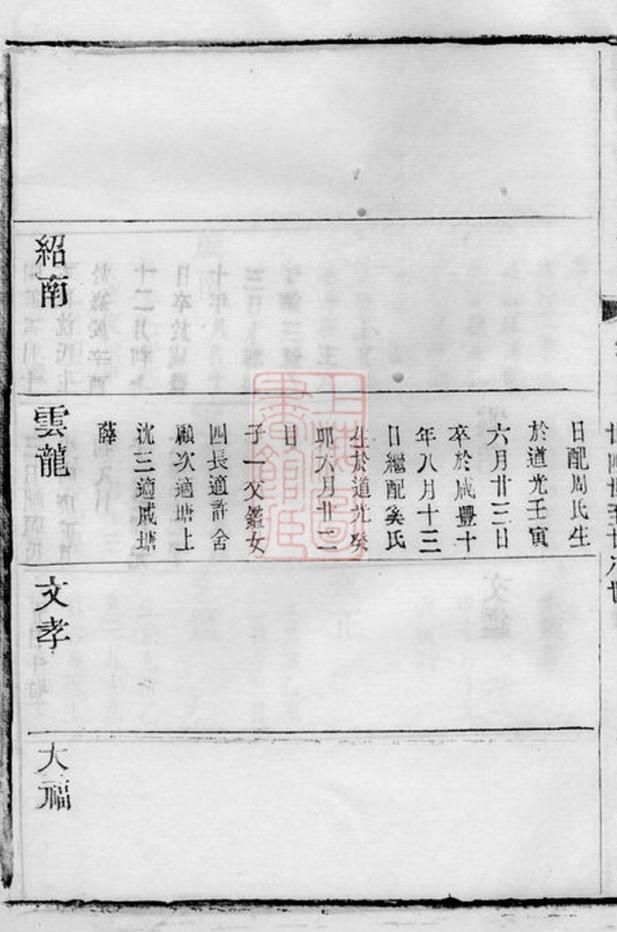 日配周氏生
於道光壬寅
六月廿三日
卒於咸豐十
年八月十三
日繼配奚氏
生於道光癸
卯六月廿二
日
子一文鑑女
四長適許舍
顧次適塘上
沈三適戚塘
薛
紹南
雲龍
文孝
大福